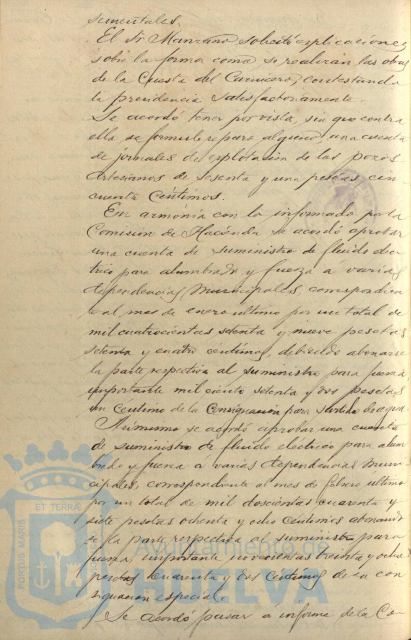 sumentales.
El Sr. Manzano solicitó explicaciones
sobre la forma como se realizan las obras
de la Cuesta del Carnicero, contestando
le presidencia satisfactoriamente.
Se acordó tener por vista, sin que contra
ella se formule reparo alguno, una cuenta
de jornales de explotación de los pozos
Artesianos de sesenta y una pesetas cin
cuenta céntimos.
En armonía con lo informado por la
Comisión de Hacienda se acordó aprobar
una cuenta de suministro de fluido eléc
trico para alumbrado y fuerza a varias
dependencias municipales, correspondien
te al mes de enero último por un total de
mil cuatrocientas setenta y nueve pesetas
setenta y cuatro céntimos, debiendo abonarse
la parte respectiva al suministro para fuerza
importante mil ciento setenta y dos pesetas
un céntimo de la consignación para surtido de agua.
Asimismo se acordó aprobar una cuenta
de suministro de fluido eléctrico para alum
brado y fuerza a varias dependencias muni
cipales, correspondiente al mes de febrero último
por un total de mil doscientas cuarenta y
siete pesetas ochenta y ocho céntimos abonando
se la parte respectiva al suministro para
fuerza importante novecientas treinta y ocho
pesetas cuarenta y dos céntimos de su con
signación especial.
Se acordó pasar a informe de la Co-
PORTUS MARIS ET TERRAE
Ayuntamiento
HUELVA